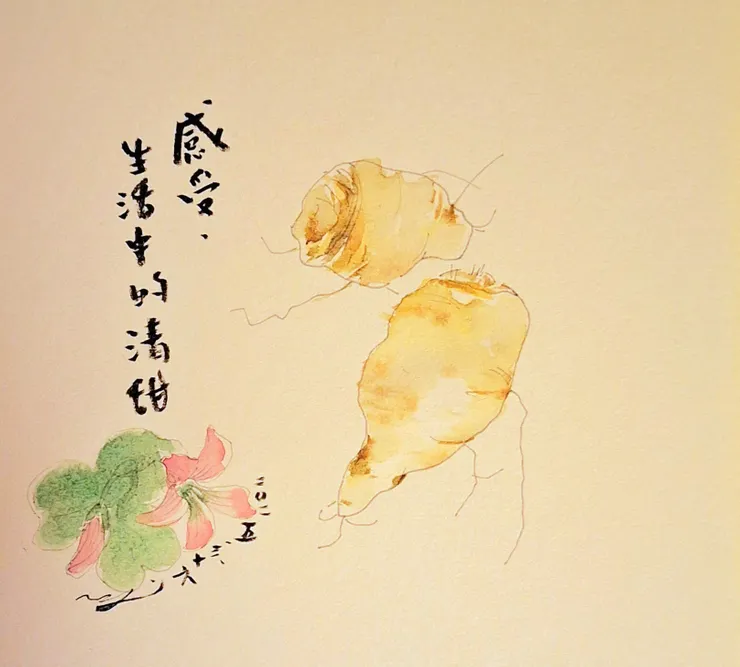 感受、
生活中的清甜
二〇二五三、十六